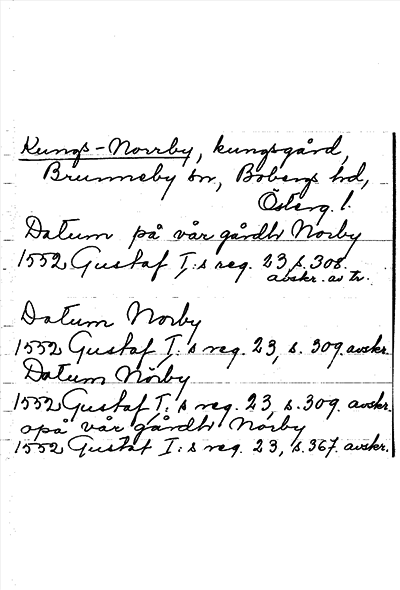 Kungs-Norrby, kungsgård,
Brunneby sn, Bobergs hd,
Österg. l.
Datum på vår gårdh Norby
1552 Gustaf I:s reg. 23, s. 308.
avskr. av tr.
Datum Norby
1552 Gustaf I:s reg. 23, s. 309. avskr.
Datum Nörby
1552 Gustaf I:s reg. 23, s. 309. avskr.
opå vår gårdh Nörby
1552 Gustaf I:s reg. 23, s. 367. avskr.